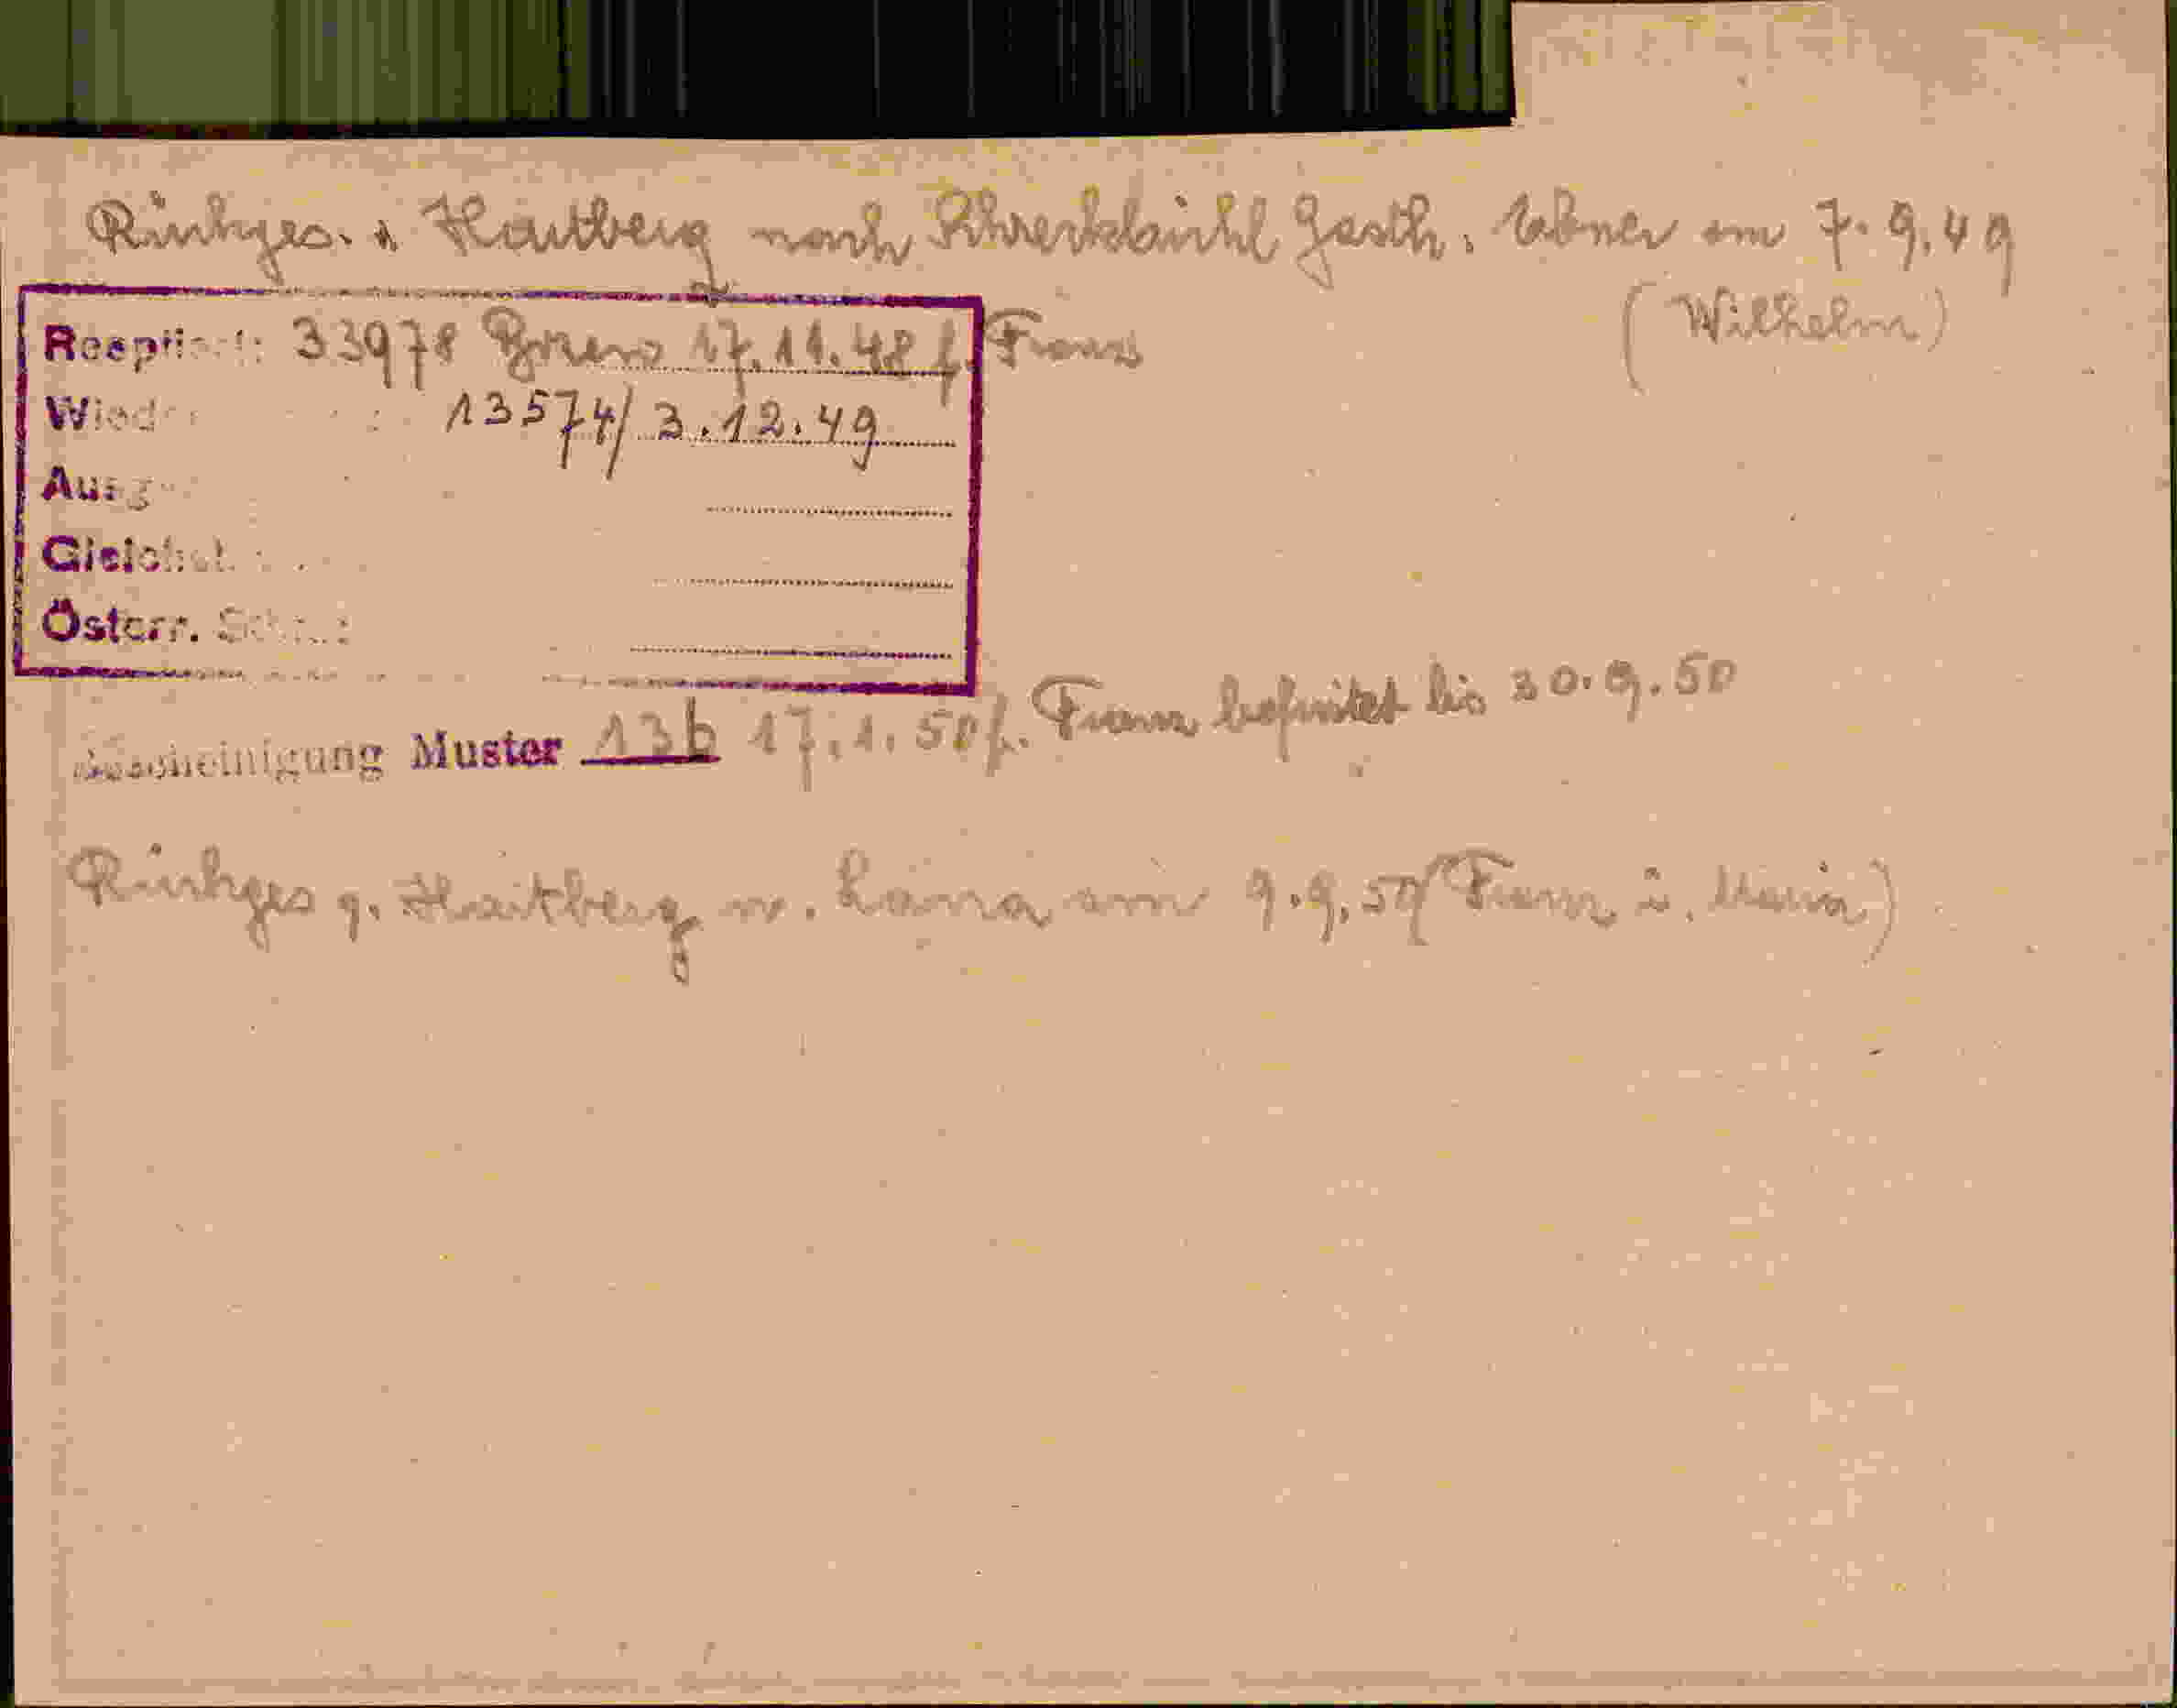 Rückges. v. Haitberg nach Schreckbichl Gasth. Ebner am 7.9.49
(Wilhelm)
Reoptiert: 33978 Bozen 17.11.48 f. Franz
13574/3.12.49
Österr.
Bescheinigung Muster 13b 17.1.50 f. Franz befristet bis 30.9.50
Rückges g. Haitberg n. Lana am 9.9.50 (Franz u. Maria)